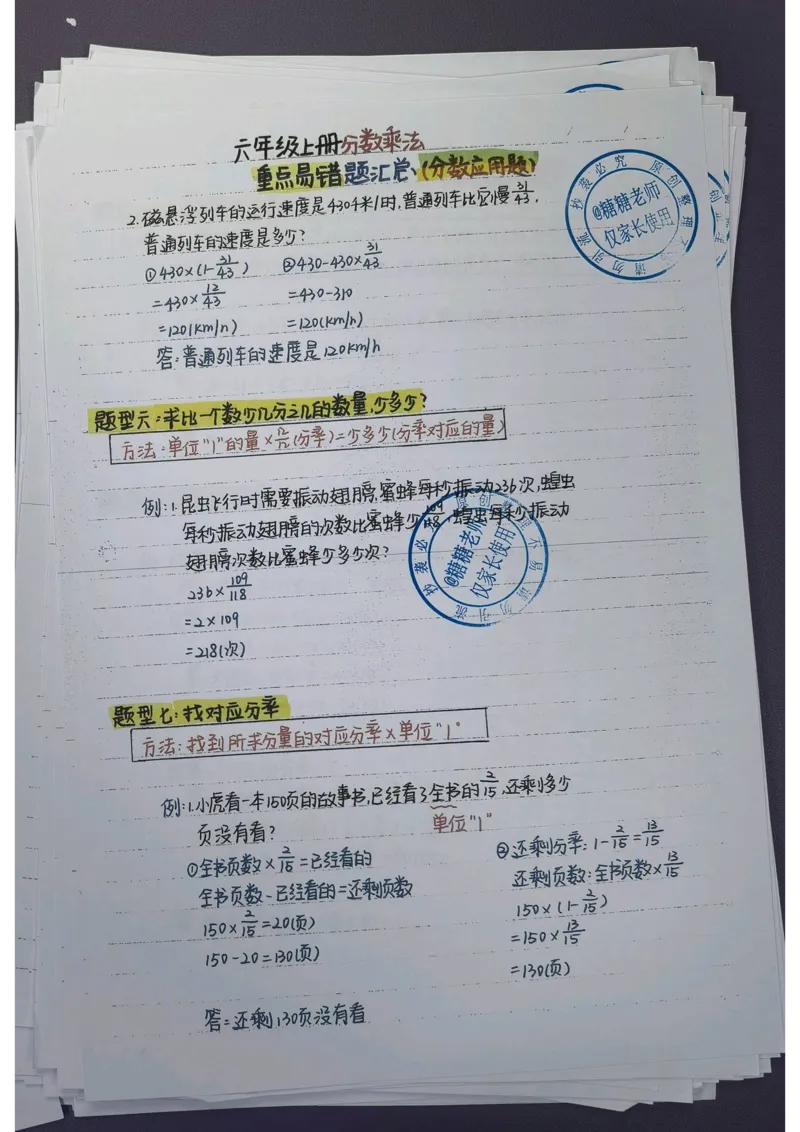 六年级上册分数乘法
重点易错题汇总、(分数应用题)
2.磁悬浮列车的运行速度是430千米/时,普通列车比它慢31/43,
普通列车的速度是多少?
①430×(1-31/43) ②430-430×31/43
=430×12/43 =430-310
=120(km/h) =120(km/h)
答:普通列车的速度是120km/h
题型六:求比一个数少几分之几的数量,少多少?
方法:单位"1"的量×n/m(分率)=少多少(分率对应的量)
例:1.昆虫飞行时需要振动翅膀,蜜蜂每秒振动236次,蝗虫
每秒振动翅膀的次数比蜜蜂少109/118,蝗虫每秒振动
翅膀次数比蜜蜂少多少次?
236×109/118
=2×109
=218(次)
题型七:找对应分率
方法:找到所求分量的对应分率×单位"1"
例:1.小虎看一本150页的故事书,已经看了全书的2/15,还剩多少
页没有看?
单位"1"
①全书页数×2/15=已经看的
全书页数-已经看的=还剩页数
150×2/15=20(页)
150-20=130(页)
②还剩分率:1-2/15=13/15
还剩页数:全书页数×13/15
150×(1-2/15)
=150×13/15
=130(页)
答:还剩130页没有看
抄袭必究 原创整理不易 请勿引流
@糖糖老师
仅家长使用
抄袭必究 原创整理不易 请勿引流
@糖糖老师
仅家长使用